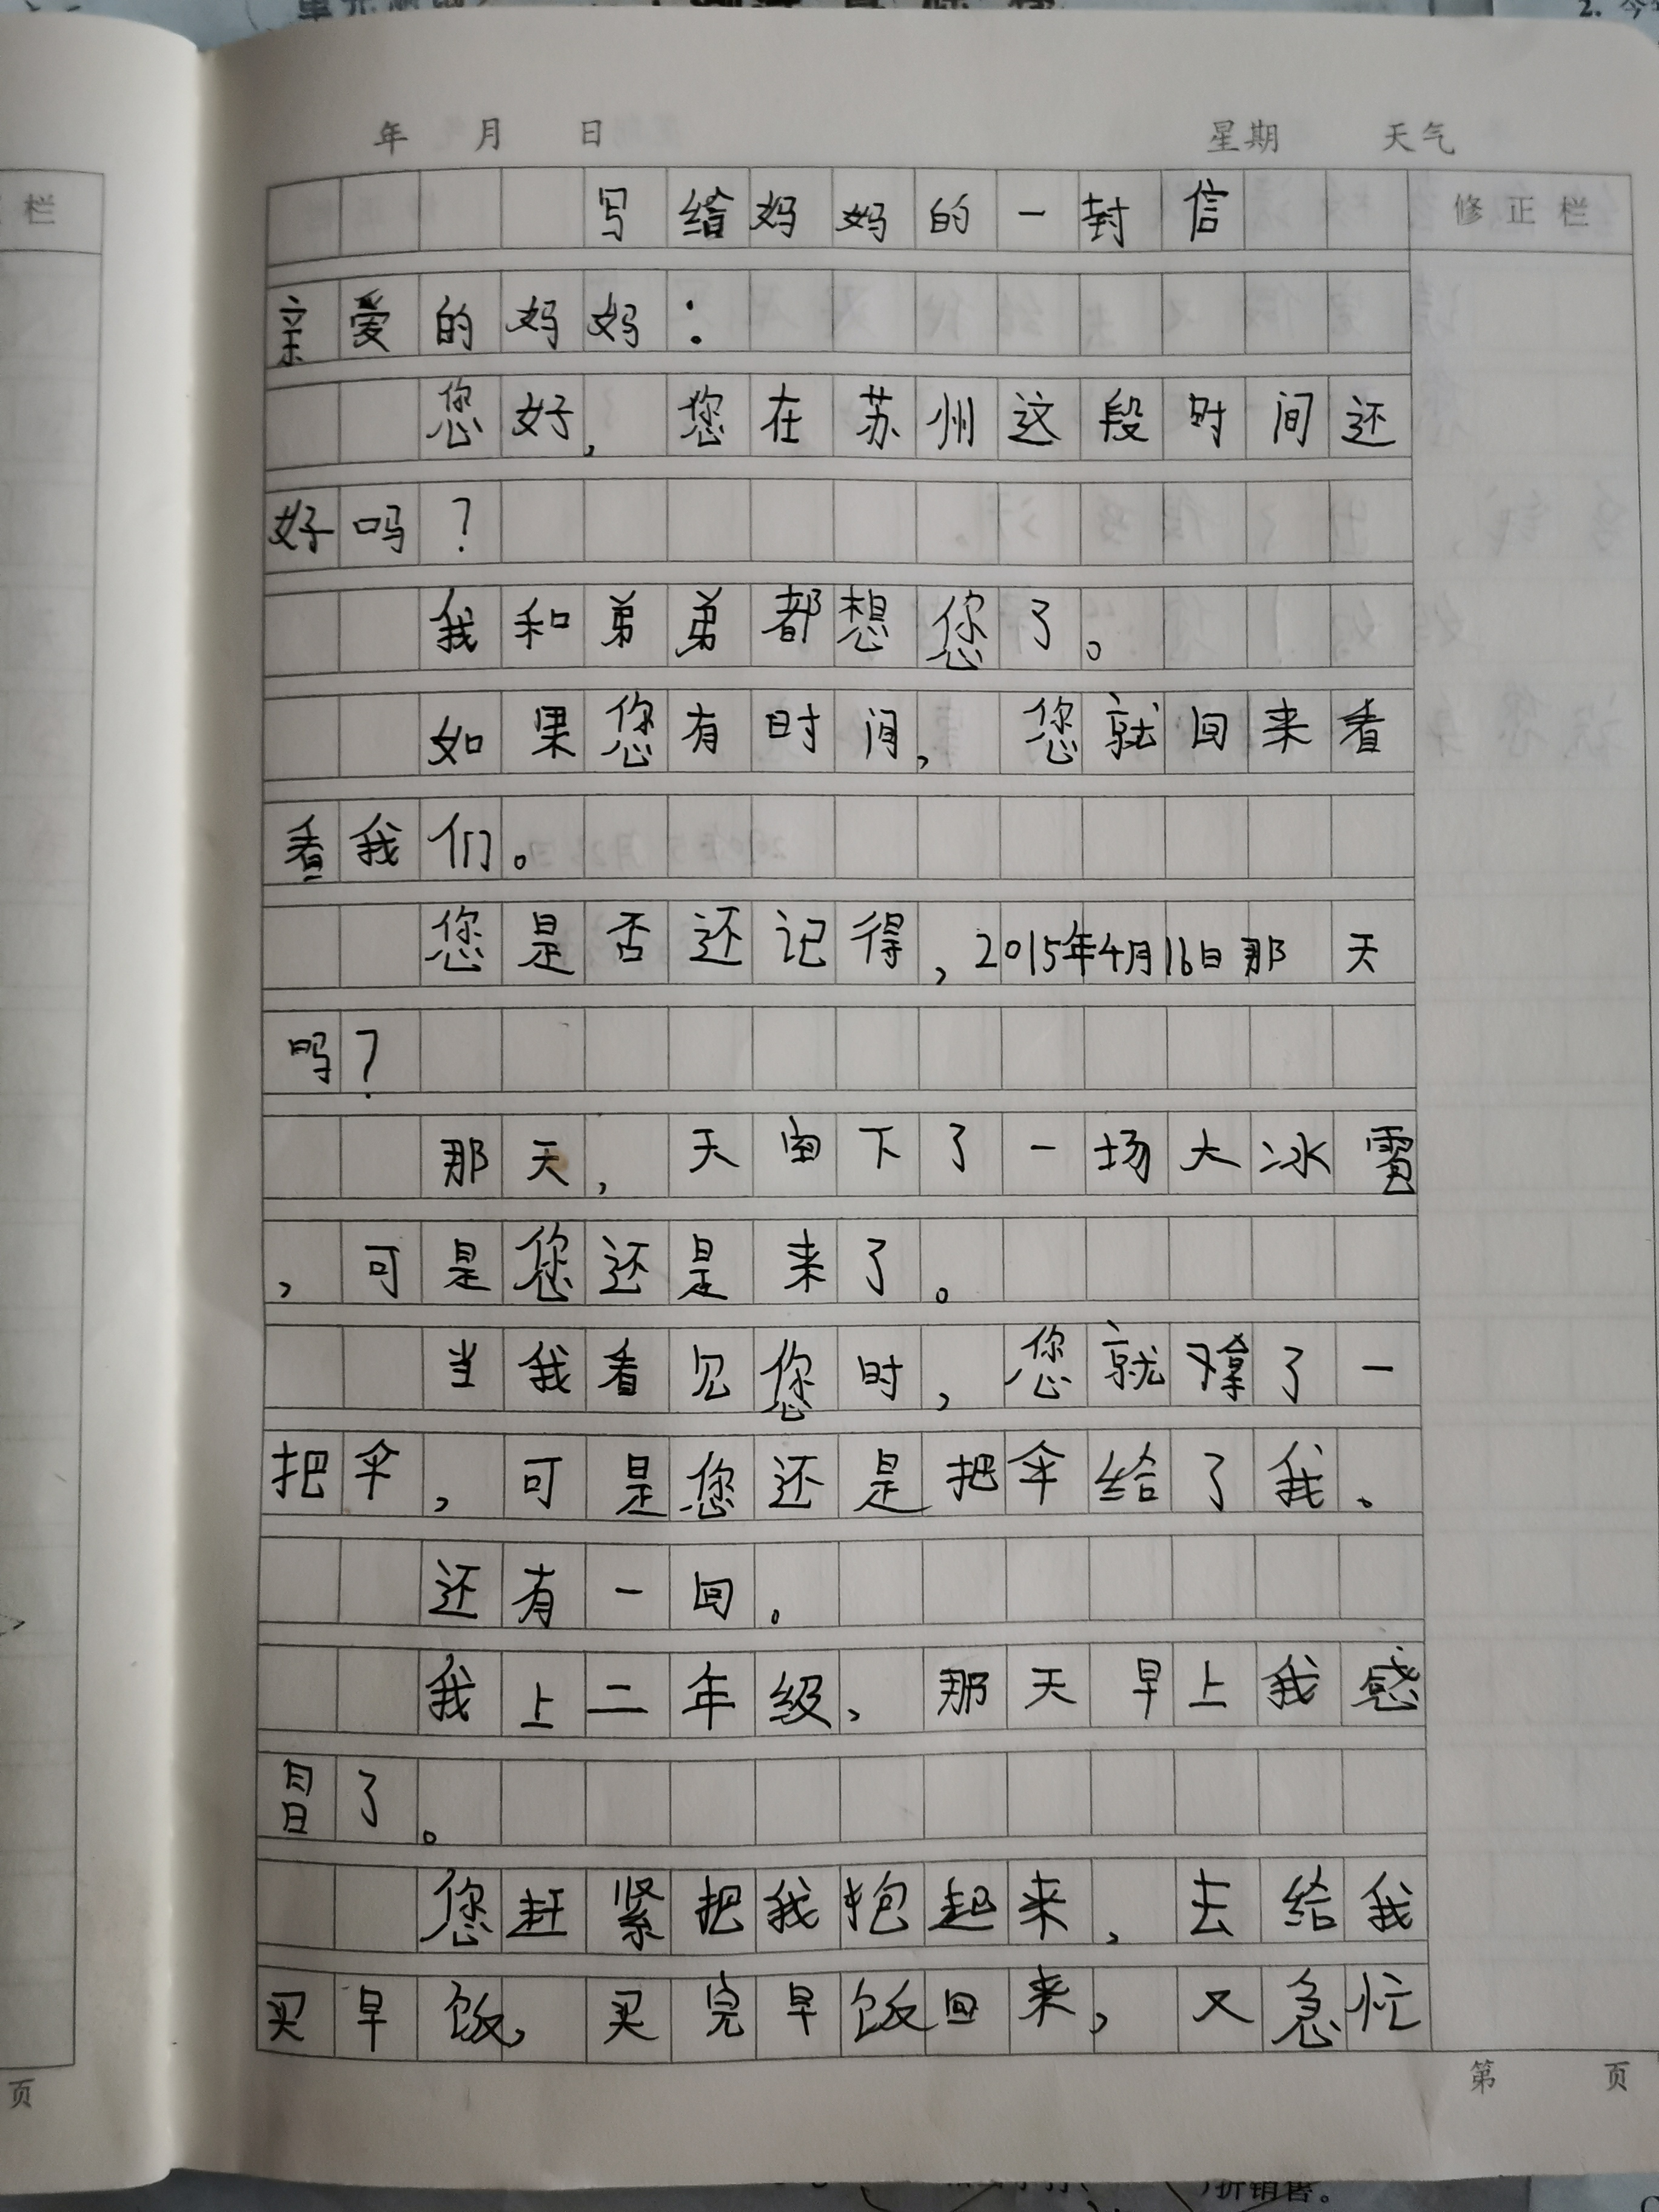 2. 今
年 月 日 星期 天气
栏
写给妈妈的一封信
修正栏
亲爱的妈妈：
您好，您在苏州这段时间还
好吗？
我和弟弟都想您了。
如果您有时间，您就回来看
看我们。
您是否还记得，2015年4月16日那天
吗？
那天，天宙下了一场大冰雹
，可是您还是来了。
当我看见您时，您就拿了一
把伞，可是您还是把伞给了我。
还有一回。
我上二年级，那天早上我感
冒了。
您赶紧把我抱起来，去给我
买早饭，买完早饭回来，又急忙
第 页
页
折销售。